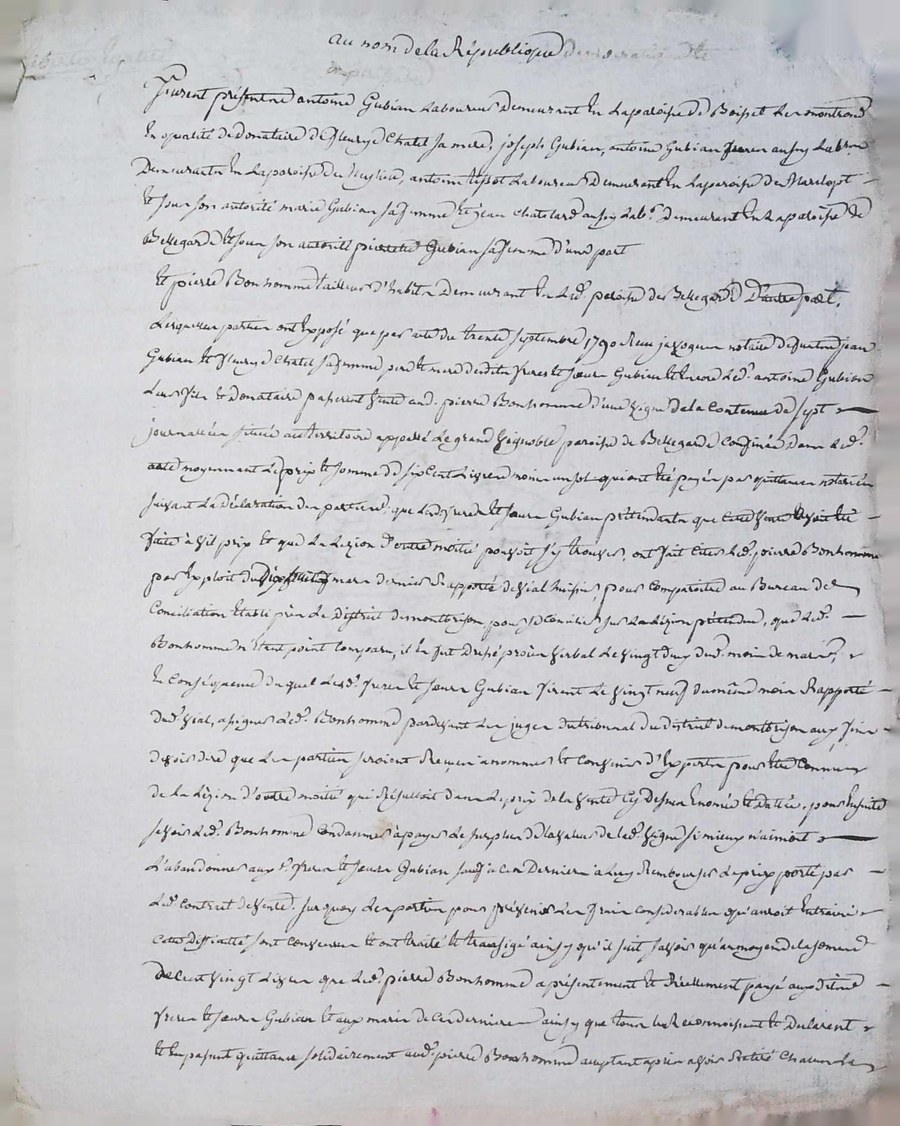 au nom de la République
furent présents antoine Gubian Laboureur demeurant en La paroisse de Boisset Les montrond
En qualité de donataire de fleurye Chatel sa mere, joseph Gubian, antoine Gubian freres aussy Lab
Demeurants en La paroisse de, antoine Laboureur Demeurant en La paroisse de Marclopt
Et sous son autorité marie Gubian sa femme Et jean Chatelard aussy Lab.r Demeurant en La paroisse de
Bellegarde Et sous son autorité pierrette Gubian sa femme d'une part
Et pierre Bonhomme tailleur d'habits Demeurant En Lad. paroisse de Bellegarde D'autre part,
Lesquelles parties ont Exposé que par acte du trente septembre 1790 Reçu notaire jean
Gubian Et fleurye Chatel sa femme pere Et mere desdits freres Et sœurs Gubian Et Encore Led. antoine Gubian
Leur fils Et donataire passerent vente aud. pierre Bonhomme d'une vigne de la Contenue de sept
journalées située au territoire appellé Le grand vignoble paroisse de Bellegarde Confinée dans Led.
acte moyennant Le prix Et somme de six Cent Livres moins un sol qui ont été payés par quittances notariées
suivant La déclaration des parties que Lesd. freres Et sœurs Gubian prétendants que Cette vente avoit été
faite à vil prix Et que La Lezion d'outre moitié pouvoit s'y trouver, ont fait Citer Led. pierre Bonhomme
par Exploit du mars dernier Rapporté de vial huissier pour Comparoitre au Bureau de
Conciliation Etabli près Le District de montbrison pour se Concilier sur La Lezion prétendue, que Led.
Bonhomme n'étant point Comparu, il En fut Dressé procès verbal Le vingt deux dud. mois de mars,
En Conséquence duquel Lesd. freres Et sœurs Gubian firent Le vingt neuf du même mois Rapporté
dud. vial, assigner Led. Bonhomme pardevant Les juges du tribunal du district de montbrison aux fins
de voir dire que Les parties seroient Renvoyées à nommer Et Convenir d'Experts pour être Connu
de La Lezion d'outre moitié qui Résultoit dans Le prix de la vente Cy Dessus Enoncée Et Datée, pour Ensuite
se voir Led. Bonhomme Condamner à payer Le surplus de la valeur de lad. vigne si mieux n'aimoit
L'abandonner aux d. freres Et sœurs Gubian sauf à Ces Derniers à Luy Rembourser Le prix porté par
Led. Contrat de vente. sur quoy Les parties pour prévenir Les frais Considerables qu'auroit Entrainé
Cette Difficulté, sont Convenues Et ont traité Et transigé ainsy qu'il suit savoir qu'au moyen de la somme
De Cent vingt Livres que Led. pierre Bonhomme a présentement Et Réellement payé auxdits
freres Et sœurs Gubian Et aux maris de Ces dernieres ainsy que tous Le Reconnoissent Et Declarent
Et En passent quittance solidairement aud. pierre Bonhomme acceptant après avoir Retiré Chacun La